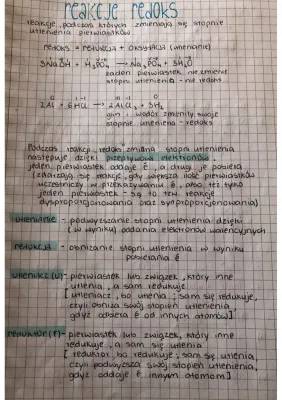 reakcje redoks
reakcje, podczas których zmieniają się stopnie
utlenienia pierwiastków
redoks = redukcja + oksydacja (utlenianie)
3NaOH + H₃PO₄ → Na₃PO₄ + 3H₂O
żaden pierwiastek nie zmienił
stopni utlenienia - nie redoks
2Al + 6HCl → 2AlCl₃ + 3H₂
glin i wodór zmieniły swoje
stopnie utlenienia - redoks
Podczas reakcji redoks zmiana stopni utlenienia
następuje dzięki przepływowi elektronów
jeden pierwiastek oddaje ē, a drugi je pobiera
(zdarzają się reakcje, gdy większa ilość pierwiastków
uczestniczy w przekazywaniu ē, albo też tylko
jeden pierwiastek - są to tzw. reakcje
dysproporcjonowania oraz synproporcjonowania)
utlenianie - podwyższanie stopni utlenienia dzięki
(w wyniku) oddania elektronów walencyjnych
redukcja - obniżanie stopni utlenienia w wyniku
pobierania ē
utleniacz (u) - pierwiastek lub związek, który inne
utlenia, a sam redukuje
[utleniacz, bo utlenia; sam się redukuje,
czyli obniża swój stopień utlenienia,
gdyż odbiera ē od innych atomów]
reduktor (r) - pierwiastek lub związek, który inne
redukuje, a sam się utlenia
[reduktor, bo redukuje; sam się utlenia,
czyli podwyższa swój stopień utlenienia,
gdyż oddaje ē innym atomom]